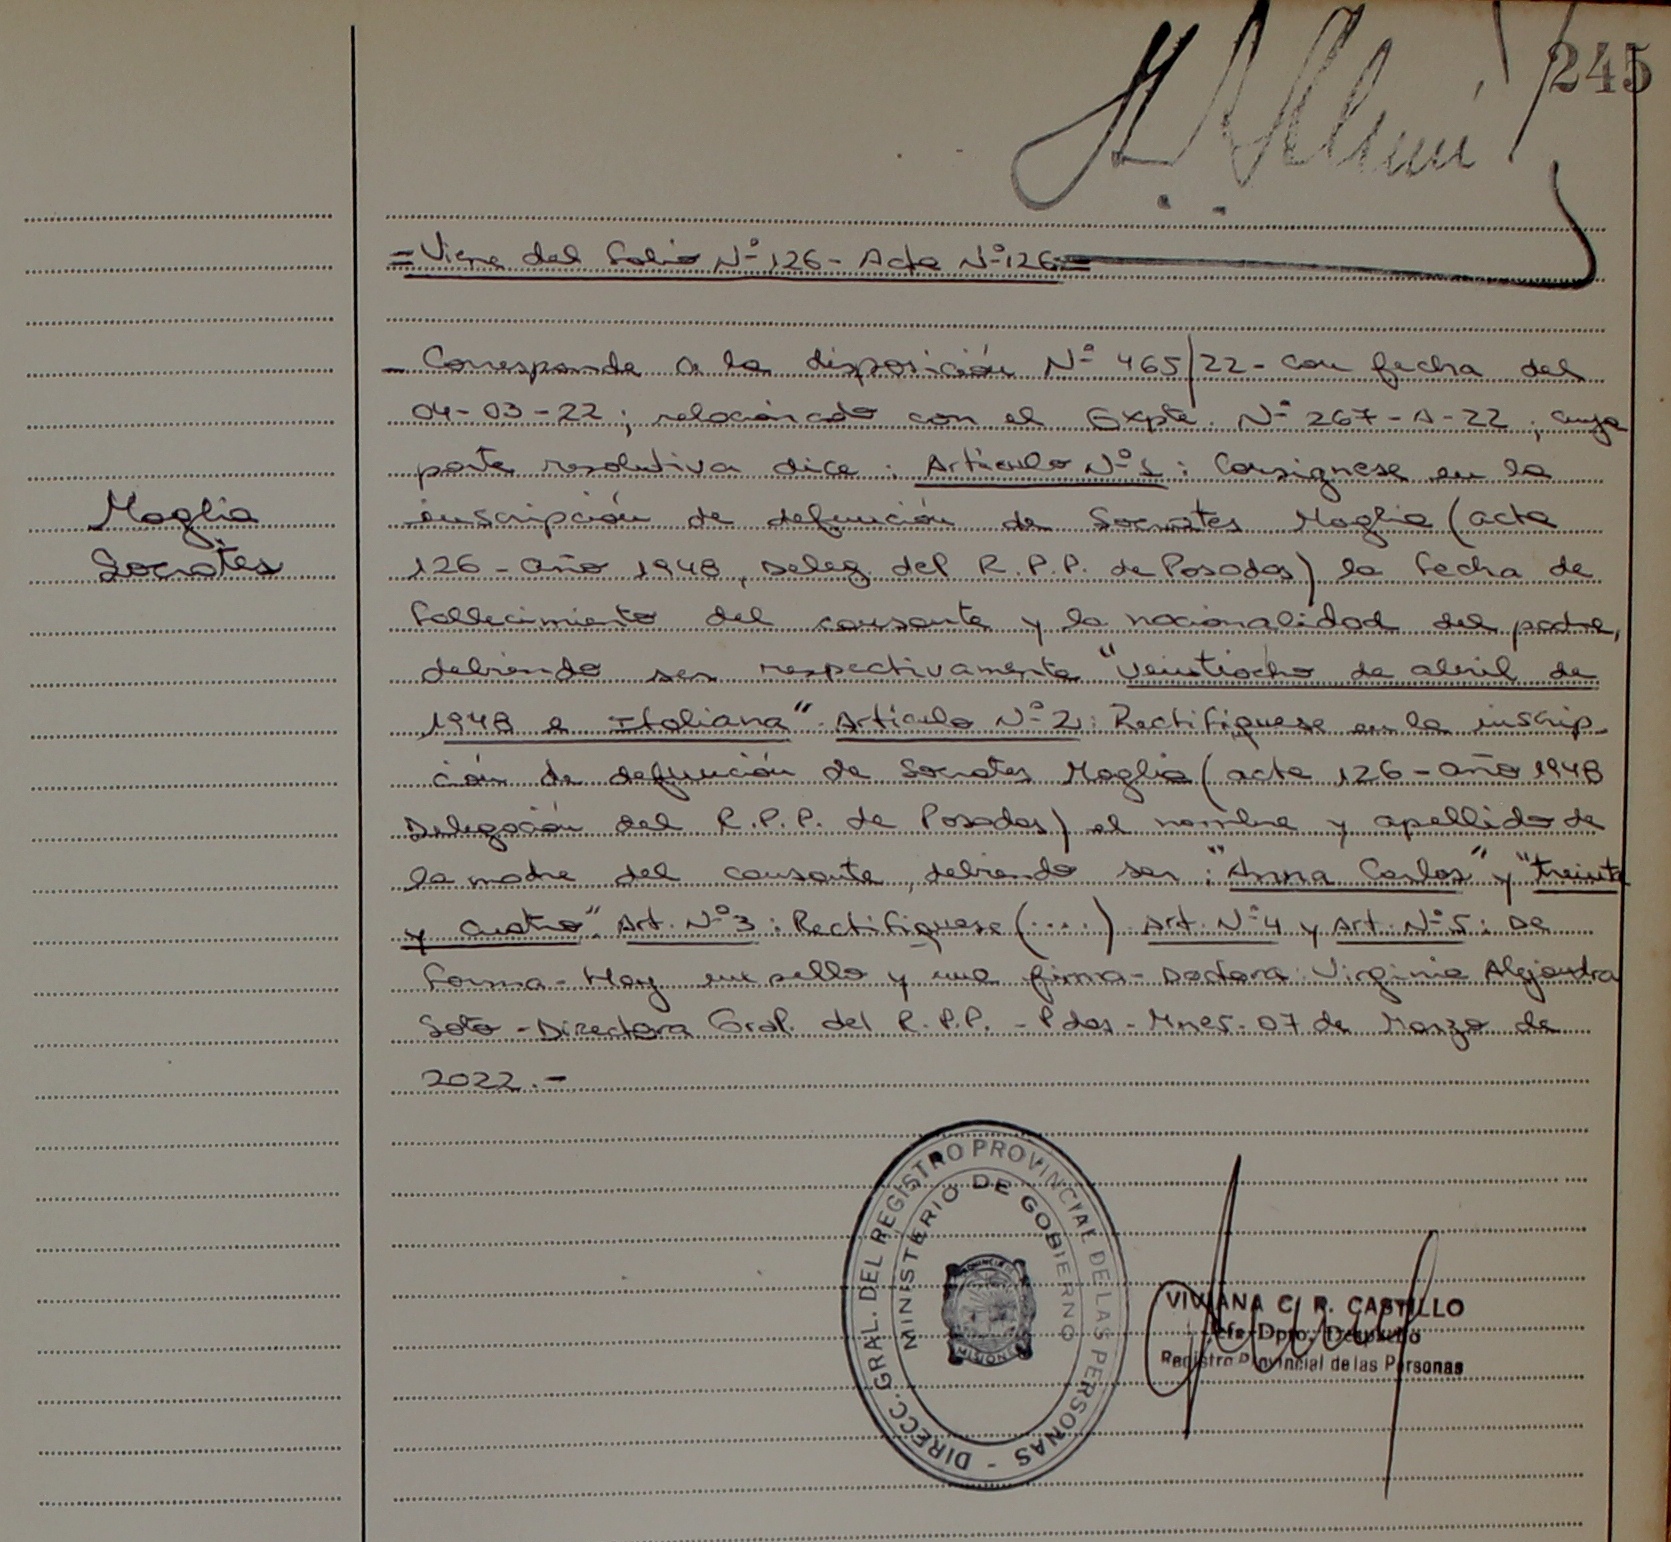 245
= Viene del Folio Nº 126 - Acta Nº 126 =
- Corresponde a la disposición Nº 465/22 - con fecha del
04-03-22; relacionado con el Expte. Nº 267-A-22; cuya
parte resolutiva dice: Artículo Nº 1: Consignese en la
Moglia
inscripción de defunción de Socrates Moglia (acta
Socrates
126 - año 1948, Deleg. del R.P.P. de Posadas) la fecha de
fallecimiento del causante y la nacionalidad del padre,
debiendo ser respectivamente "veintiocho de abril de
1948 e Italiana". Artículo Nº 2: Rectifiquese en la inscrip-
ción de defunción de Socrates Moglia (acta 126 - año 1948
Delegación del R.P.P. de Posadas) el nombre y apellido de
la madre del causante, debiendo ser: "Anna Carlos" y "treinta
y cuatro". Art. Nº 3: Rectifiquese (...) Art. Nº 4 y Art. Nº 5: De
forma - Hay un sello y una firma - Doctora: Virginia Alejandra
Soto - Directora Gral. del R.P.P. - Pdas - Mnes. 07 de Marzo de
2022.-
DIRECC. GRAL. DEL REGISTRO PROVINCIAL DE LAS PERSONAS -
MINISTERIO DE GOBIERNO
PROVINCIA DE
MISIONES
VIVIANA C. R. CASTILLO
Jefe Dpto.
Registro Provincial de las Personas